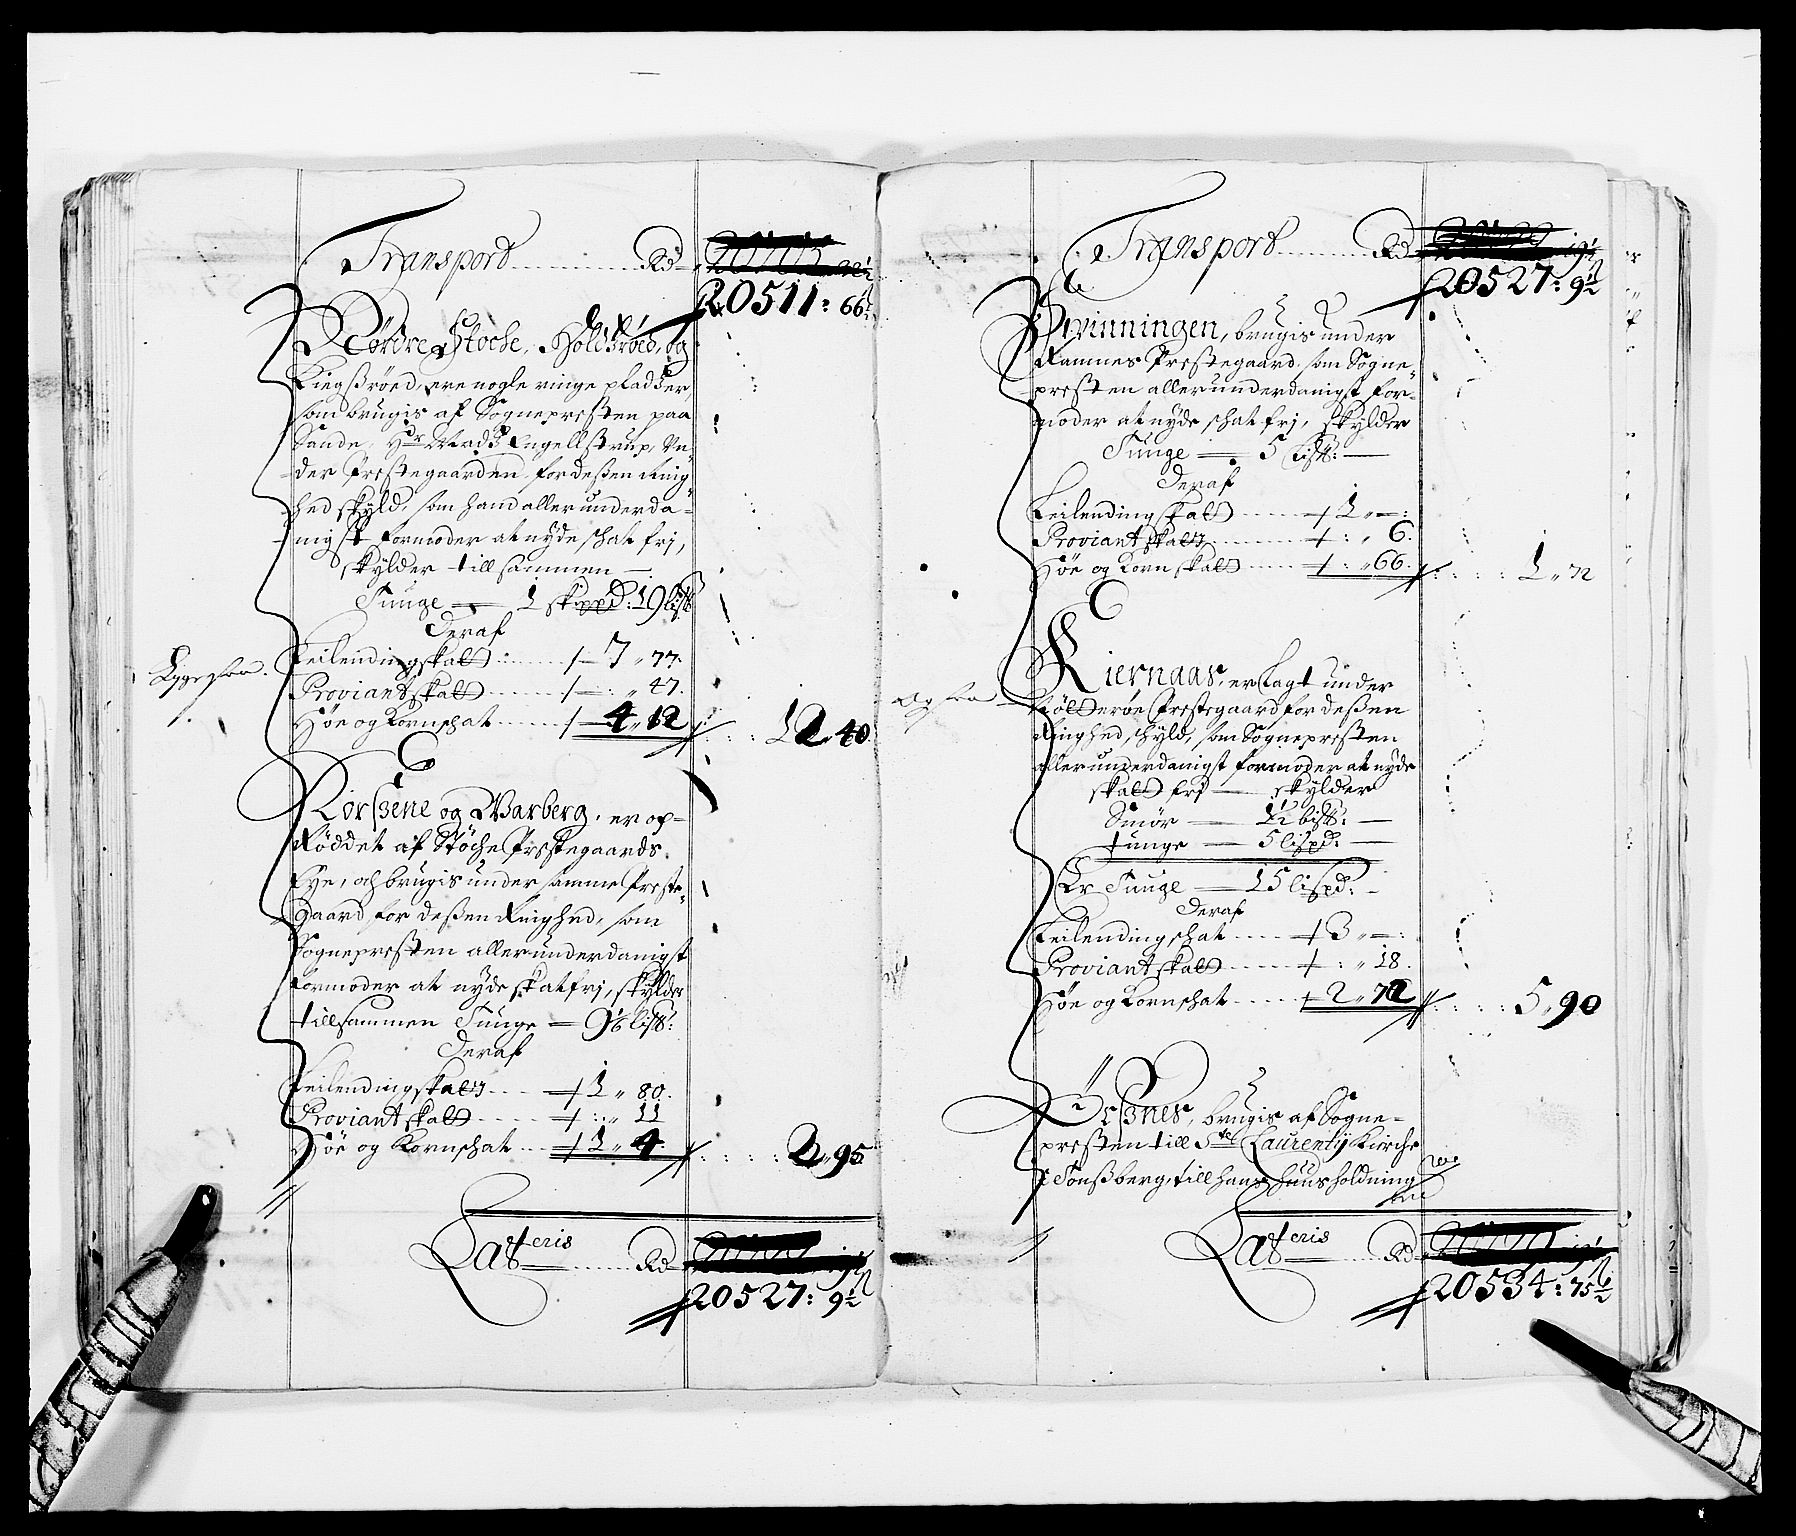 Transport ......... Rd
20511: 66½
Nørdre Stoche, Holdtrøed, og
Kiegsrøed, ere nogle ringe pladtzer,
som brugis af Sognepresten paa
Sande, Hr Engellstrup, Un-
der Prestegaarden, for desen Ring
hed skyld, som hand allerunderda-
nigst formoder at nyde skat frj,
skylder till sammen —
Tunge — 1 skippd: 19 lis℔
Deraf
Leilending skatt ...... 7 „ 77.
Proviant skatt ...... „ 47.
Høe og Korn skat ...... 4 „ 12 .... 12 „ 40.
Ligesaa.
og Warberg, er op-
Røddet af Støche Prestegaards
Eye, och brugis under samme Preste-
gaard for desen Ringhed, som
Sognepresten allerunderdanigst
formoder at nyde skatfrj, skylder
tillsammen Tunge — 9½ lis℔:
Deraf
Leilending skatt .... 1 „ 80.
Proviant skatt .... „ 11
Høe og Kornskat ... 1 „ 4. .... 2 „ 95
Lateris ...... Rd
20527: 9½
Transport ......... Rd
20527: 9½
Qvinningen, brugis under
Ramnes Prestegaard, som Sogne-
presten allerunderdanigst for-
moder at nyde skat frj, skylder
Tunge — 5 lis℔: —
Deraf
Leilending skatt ...... 1 „ —:
Proviant skatt ...... : „ 6.
Høe og Korn skatt ..... : „ 66. .... 1 „ 72
Kiernaas, er lagt under
Nøtterøe Prestegaard for desen
Ringhed skyld, som Sognepresten
allerunderdanigst formoder at nyde
skatt frj — skylder
Smør — 1½ bis℔: —
tunge — 5 lispd: —
Er Tunge — 15 lispd: —
Deraf
Leilending skat .... 3 „ —:
Proviant skatt .... : „ 18.
Høe og Kornskat .... 2 „ 72 .... 5 „ 90
Ørsnes, brugis af Sogne-
presten till Ste Laurentij Kirche
i Tønsberg, till hans huusholdning
Lateris ...... Rd
20534: 75½